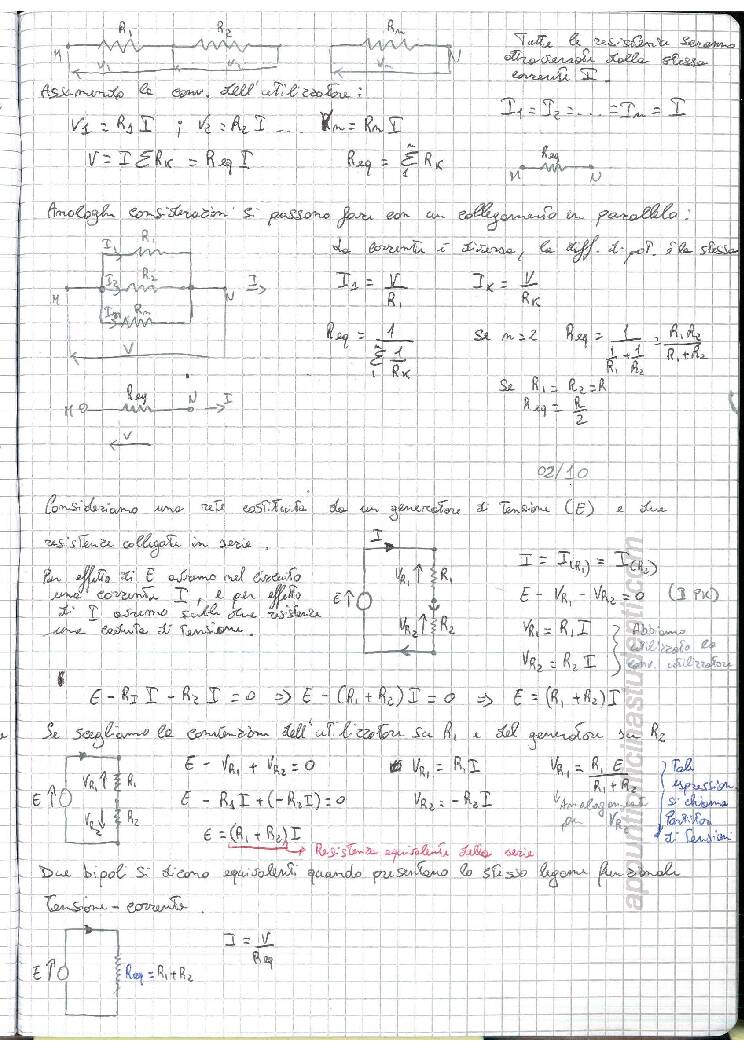 R1 R2 Rn
M V1 V2 Vn N
Tutte le resistenze saranno
attraversate dalla stessa
corrente I.
Assumendo la conv. dell'utilizzatore:
I1 = I2 = .... = In = I
V1 = R1 I ; V2 = R2 I ... Vn = Rn I
V = I Σ RK = Req I
Req = Σ RK
n
1
Req
M N
Analoghe considerazioni si possono fare con un collegamento in parallelo:
La corrente è diversa, la diff. di pot. è la stessa
I1 R1
I2 R2
In Rn
M N I
V
I1 = V/R1 IK = V/RK
Req = 1/(Σ 1/RK) Se n=2 Req = 1/(1/R1 + 1/R2) = R1R2/(R1+R2)
Se R1 = R2 = R
Req = R/2
M Req N I
V
02/10
Consideriamo una rete costituita da un generatore di Tensione (E) e due
resistenze collegate in serie.
Per effetto di E avremo nel circuito
una corrente I, e per effetto
di I avremo sulle due resistenze
una caduta di Tensione.
I
E VR1 R1
VR2 R2
I = I(R1) = I(R2)
E - VR1 - VR2 = 0 (I PK)
VR1 = R1 I
VR2 = R2 I
Abbiamo
utilizzato la
conv. utilizzatore
E - R1 I - R2 I = 0 => E - (R1 + R2) I = 0 => E = (R1 + R2) I
Se scegliamo la convenzione dell'utilizzatore su R1 e del generatore su R2
E VR1 R1
VR2 R2
E - VR1 + VR2 = 0 VR1 = R1 I VR1 = R1 E/(R1 + R2)
E - R1 I + (-R2 I) = 0 VR2 = -R2 I
Analogamente
per VR2
Tali
espressioni
si chiama
Partitore
di Tensione
E = (R1 + R2) I
Resistenza equivalente della serie
Due bipoli si dicono equivalenti quando presentano lo stesso legame funzionale
Tensione - corrente.
E Req = R1 + R2
I = V/Req
appuntiincinastudesti.com